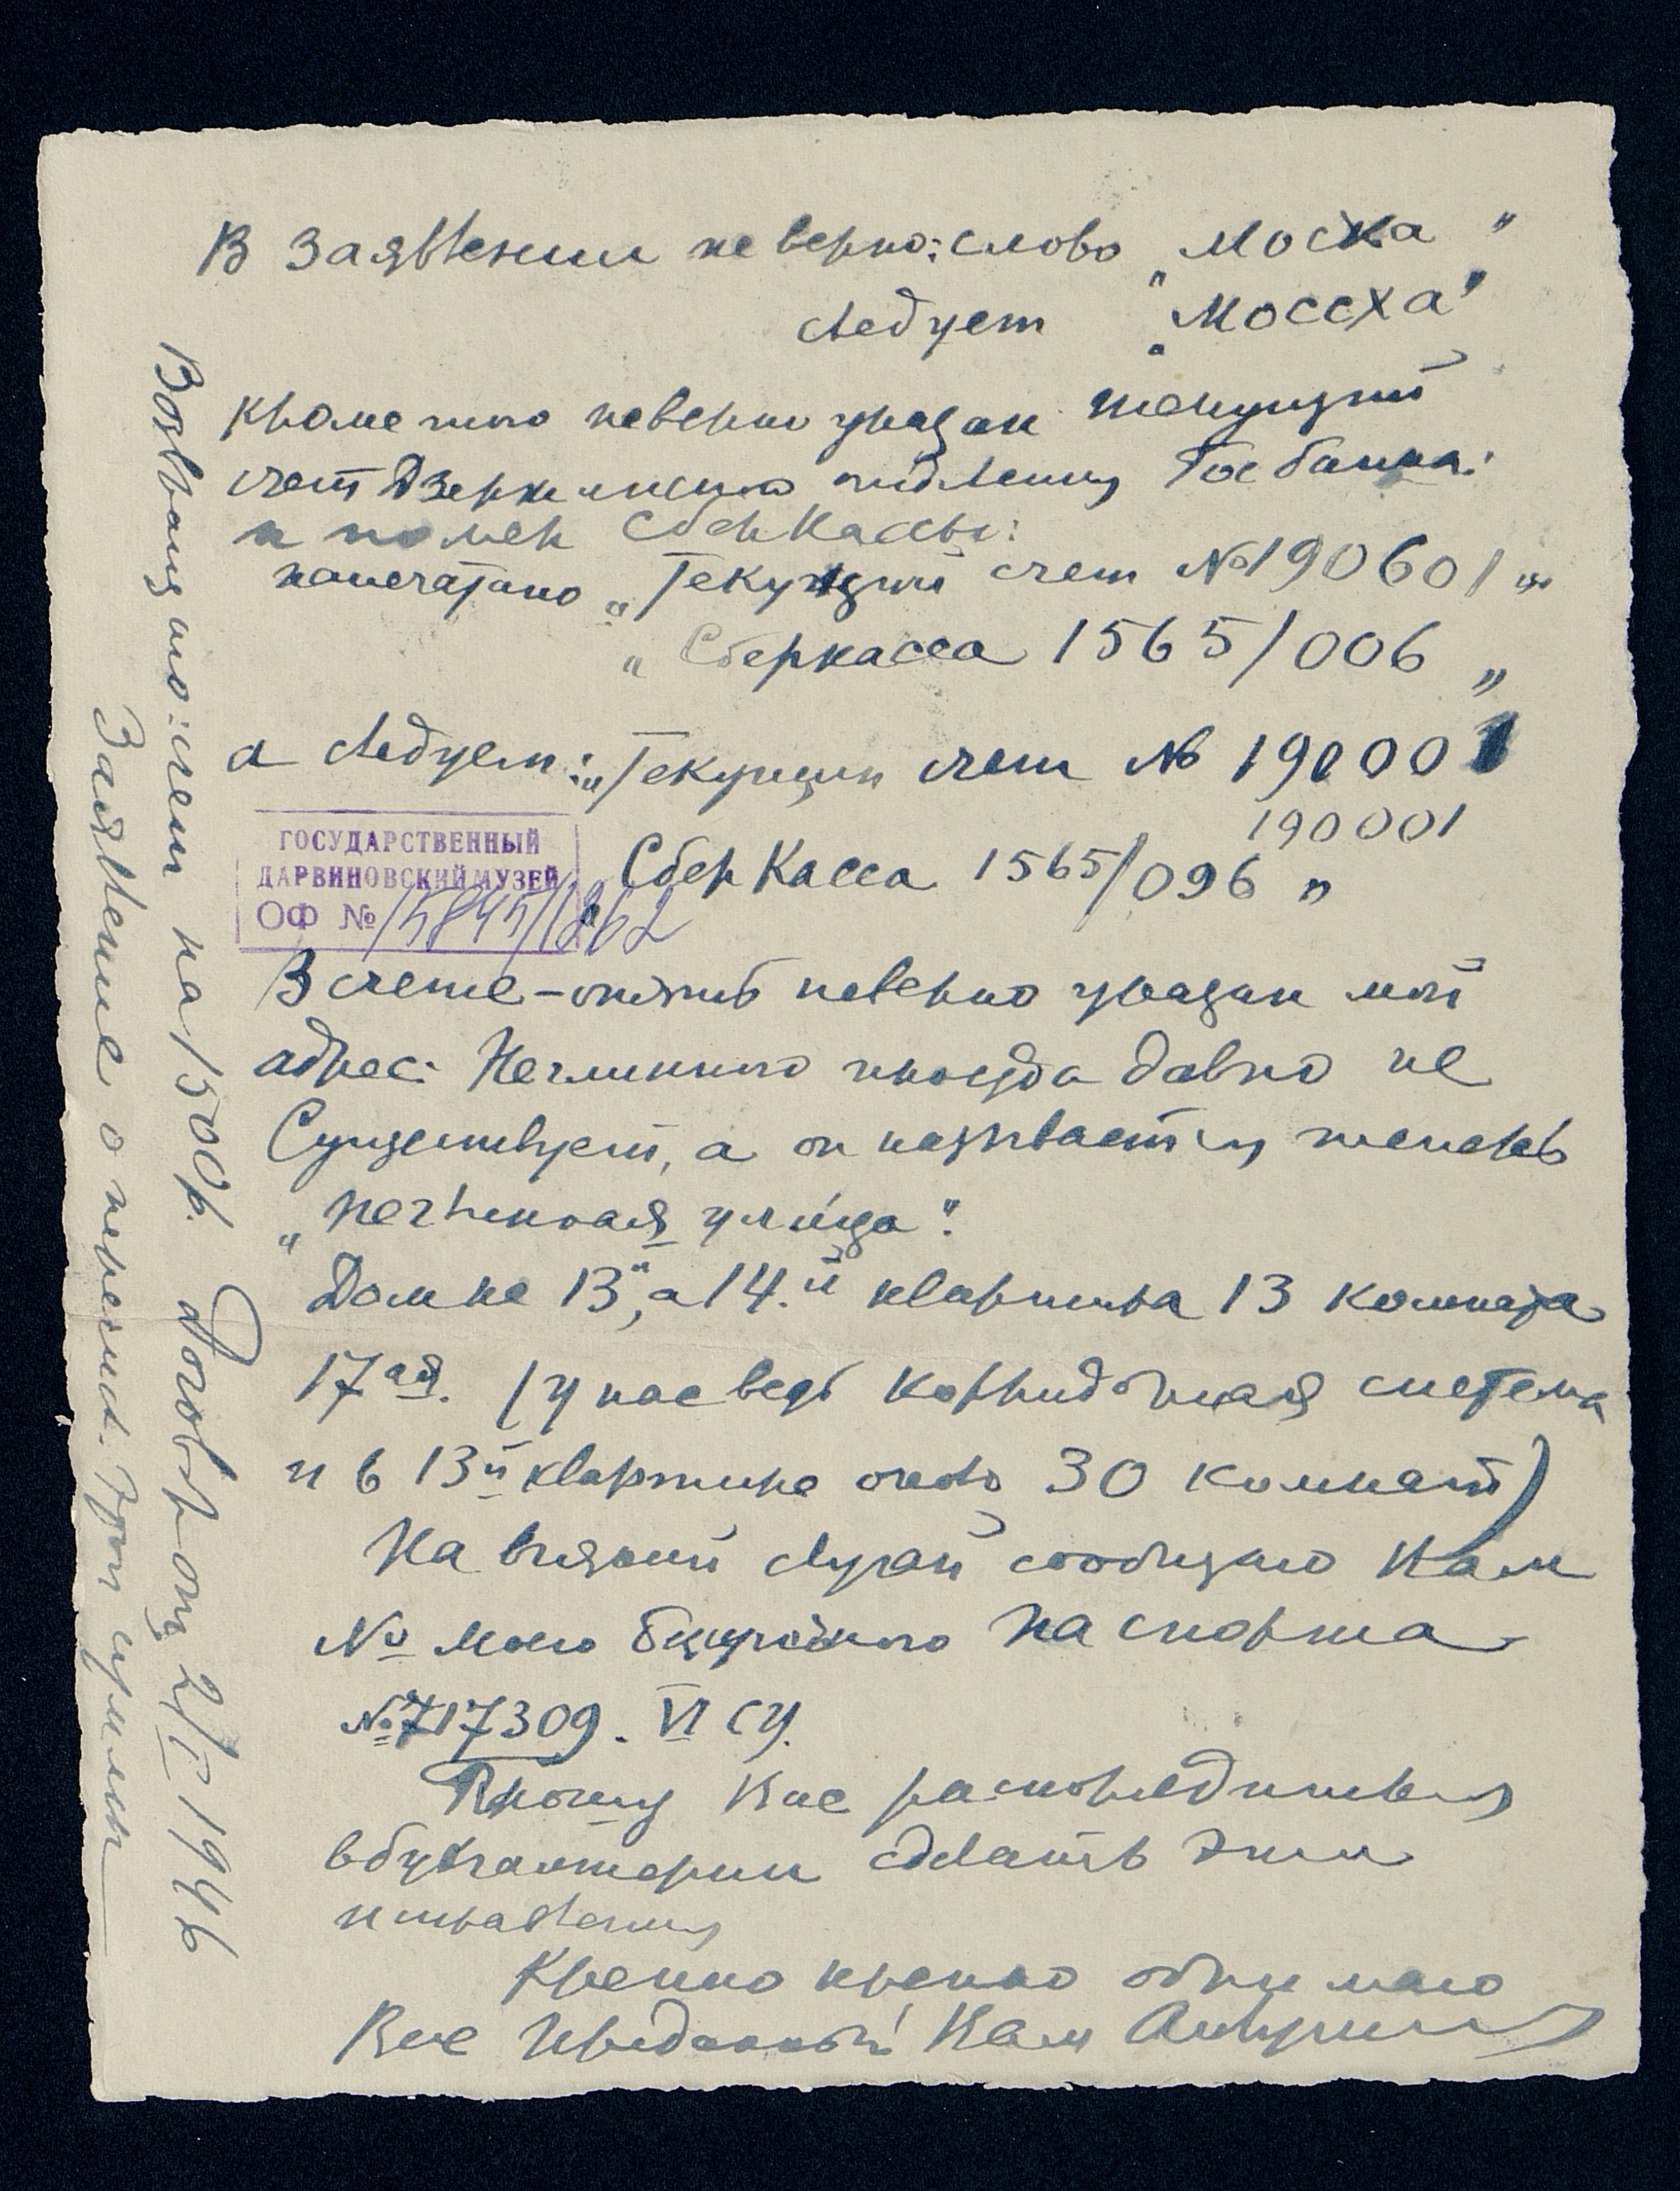 В Заявлении неверно: слово „Моска"
следует „МОССХА"
кроме того неверно указан текущий
счет Дзержинского отделения Госбанка:
и номер СберКассы:
напечатано „Текущий счет №190601"
„Сберкасса 1565/006"
а следует: „Текущий счет № 190001
190001
„СберКасса 1565/096"
ГОСУДАРСТВЕННЫЙ
ДАРВИНОВСКИЙ МУЗЕЙ
ОФ №
В счете - опять неверно указан мой
адрес: Неглинного проезда давно не
Существует, а он называется теперь
„Неглинная улица".
Дом не 13, а 14.й квартира 13 комната
17ая. (у нас ведь корридорная система
и в 13й квартире около 30 комнат)
На всякий случай сообщаю Вам
№ моего бессрочного паспорта
№717309. VI СУ.
Прошу Вас распорядиться
в бухгалтерии сделать эти
исправления
Крепко крепко обнимаю
Вас Преданный Вам
Возвращаю: счет на 1500р. Договор от 2/I 1946
Заявление о перечисл.